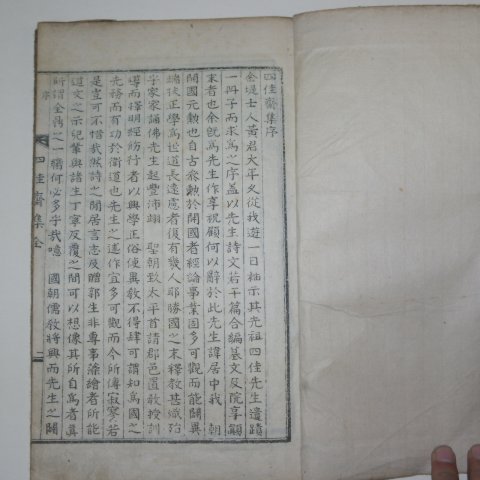 四佳齋集序
金堤士人黃君大年久從我遊一日袖示其先祖四佳先生遺蹟
一冊子而求爲之序盖以先生詩文若干篇合編墓文及院享顚
末者也余旣爲先生作享祝顧何以辭於此先生諱居中我 朝
開國元勳也自古宬勳於開國者經論事業固多可觀而能闢異
端扶正學爲世道長遠慮者復有幾人耶勝國之末釋敎甚熾殆
乎家家誦佛先生起豐沛翊 聖朝致太平首請郡邑置敎授訓
導而擇明經飭行者以興學正俗使異敎不得肆可謂知爲國之
先務而有功於衛道也先生之述作宜多可觀而今所傳寂寥若
是豈可不惜哉然詩之閒居言志及贈郭生非專事藻繪者所能
道文之示兒輩與諸生丁寧反覆之間可以想像其所自爲者眞
所謂全鼎之一臠何必多乎哉噫 國朝儒敎將興而先生之闢
四佳齋集全
序
二